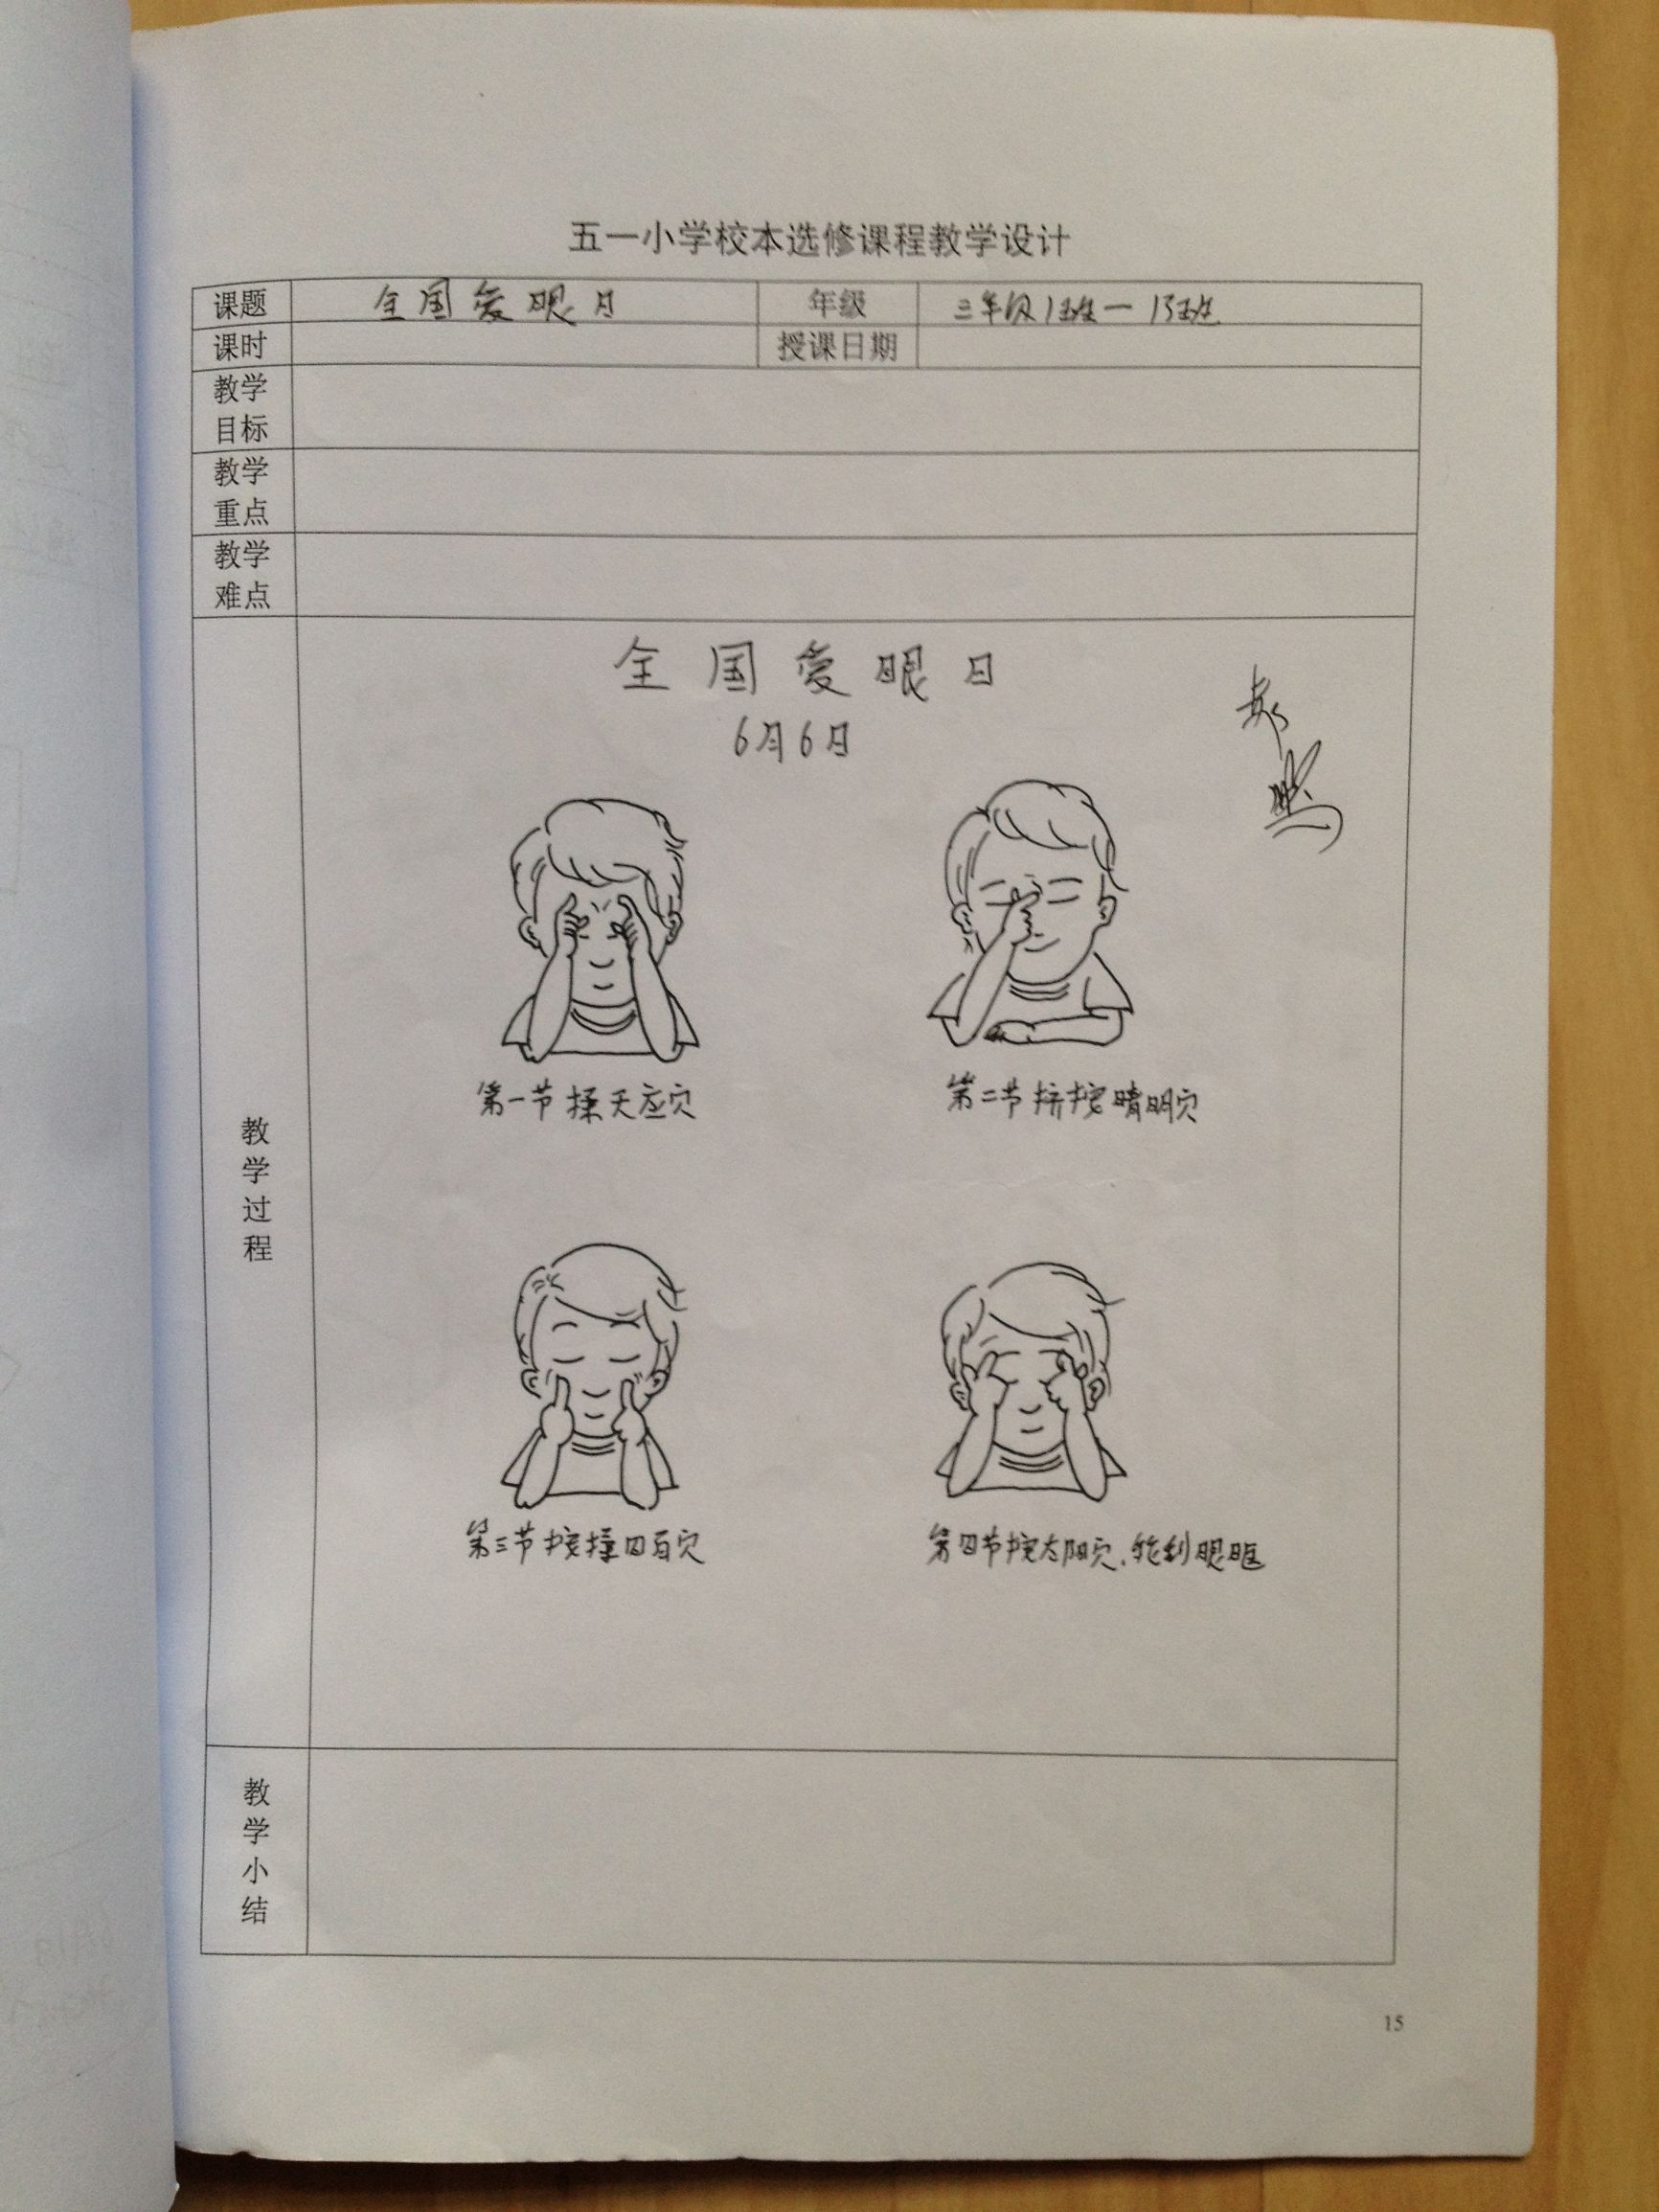 五一小学校本选修课程教学设计
课题 全国爱眼日 年级 三年级1班—13班
课时 授课日期
教学目标
教学重点
教学难点
教学过程
全国爱眼日
6月6日
第一节 揉天应穴
第二节 挤按睛明穴
第三节 按揉四百穴
第四节 按太阳穴、轮刮眼眶
教学小结
15